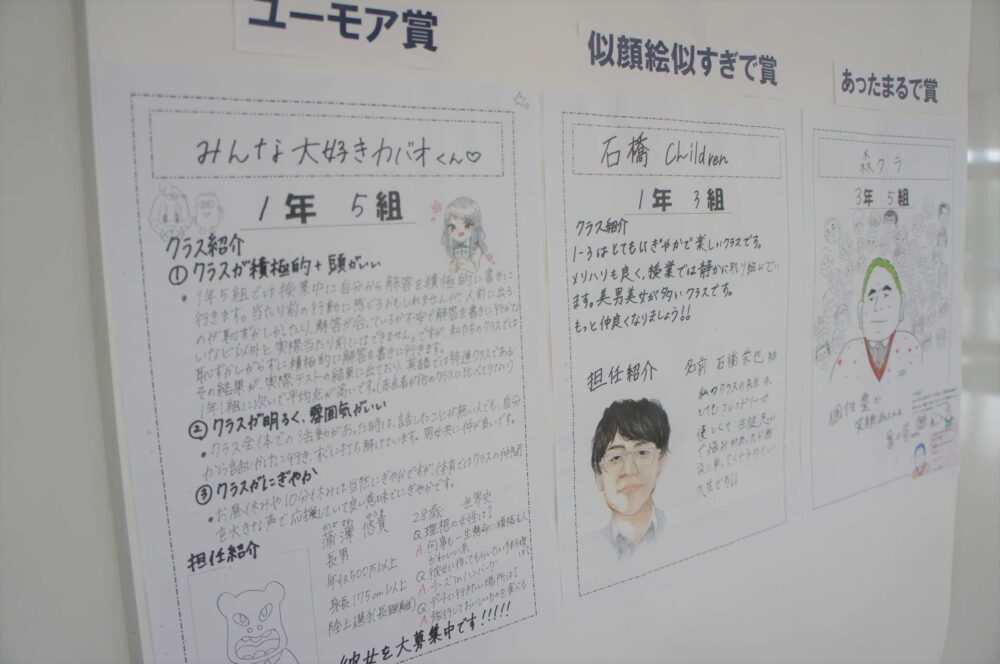 ユーモア賞
みんな大好きカバオくん♡
1年 5組
クラス紹介
① クラスが積極的+頭がいい
・1年5組では授業中に自分から解答を積極的に書きに
行きます。当たり前の行動に感じるかもしれませんが、人前に出る
のが恥ずかしかったり、解答が合っているか不安で解答を書きに行かな
いなど以外と実際当たり前にはできません。ですが、私たちのクラスでは
恥ずかしがらずに積極的に解答を書きに行きます。
その結果が、実際テストの結果に出ており、英語では特進クラスである
1年1組に次いで平均点が高いです。(赤点者が他のクラスに比べて少ない)
② クラスが明るく、雰囲気がいい
・クラス全体での活動があった時は、話したことが無い人でも、自分
から話しかけに行き、すぐに打ち解けています。男女共に仲が良いです。
③ クラスがにぎやか
・お昼休みや10分休みは当然にぎやかですが、体育ではクラスの仲間
を大きな声で応援していて良い意味でにぎやかです。
担任紹介
蒲澤 悠貴
28歳 世界史
長男
年収500万以上
身長175cm以上
陸上選手(長距離)
Q. 理想の女性は?
A. 何事も一生懸命に頑張る人
かわいい系
Q. 彼女に作ってもらいたい手料理は?
A. チーズinハンバーグ
Q. デートに行きたい場所は?
A. 旅行しておいしいものを食べる
彼女を大募集中です!!!!!
似顔絵似すぎで賞
石橋 Children
1年 3組
クラス紹介
1-3はとてもにぎやかで楽しいクラスです。
メリハリも良く、授業では静かに取り組んでい
ます。美男美女が多いクラスです。
もっと仲良くなりましょう!!
担任紹介
名前 石橋
私のクラスの先生は、
とてもフレンドリーで
優しくて 生徒思い
で悩みがあったら相
談に乗ってくれるやさしい
先生です!!
あったまるで賞
森クラ
3年 5組
個性豊か